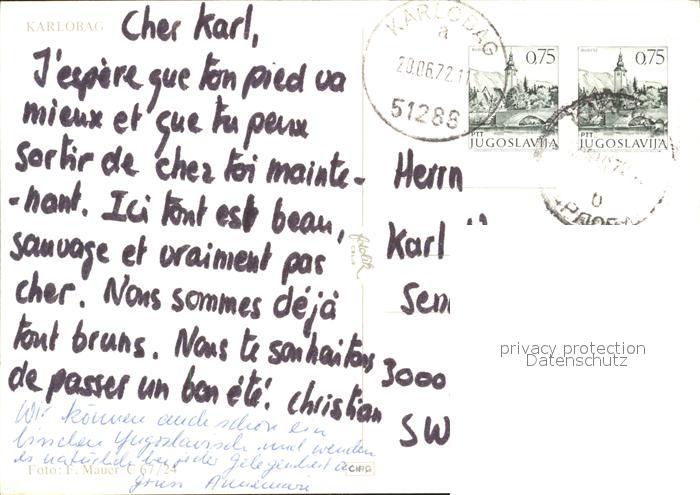 KARLOBAG
Cher Karl,
J'espère que ton pied va
mieux et que tu peux
sortir de chez toi mainte-
-nant. Ici tout est beau,
sauvage et vraiment pas
cher. Nous sommes déjà
tout bruns. Nous te souhaitons
de passer un bon été! Christian
Wir können auch schon ein
bisschen Yugoslavisch und wenden
es natürlich bei jeder Gelegenheit an
Gruss Annemarie
Foto: F. Mauer C 67/24
CIPG
KARLOBAG
a
20.06.72.11
51288
0,75
PTT
JUGOSLAVIJA
0,75
PTT
JUGOSLAVIJA
Herrn
Karl
Sen
3000
SW
privacy protection
Datenschutz